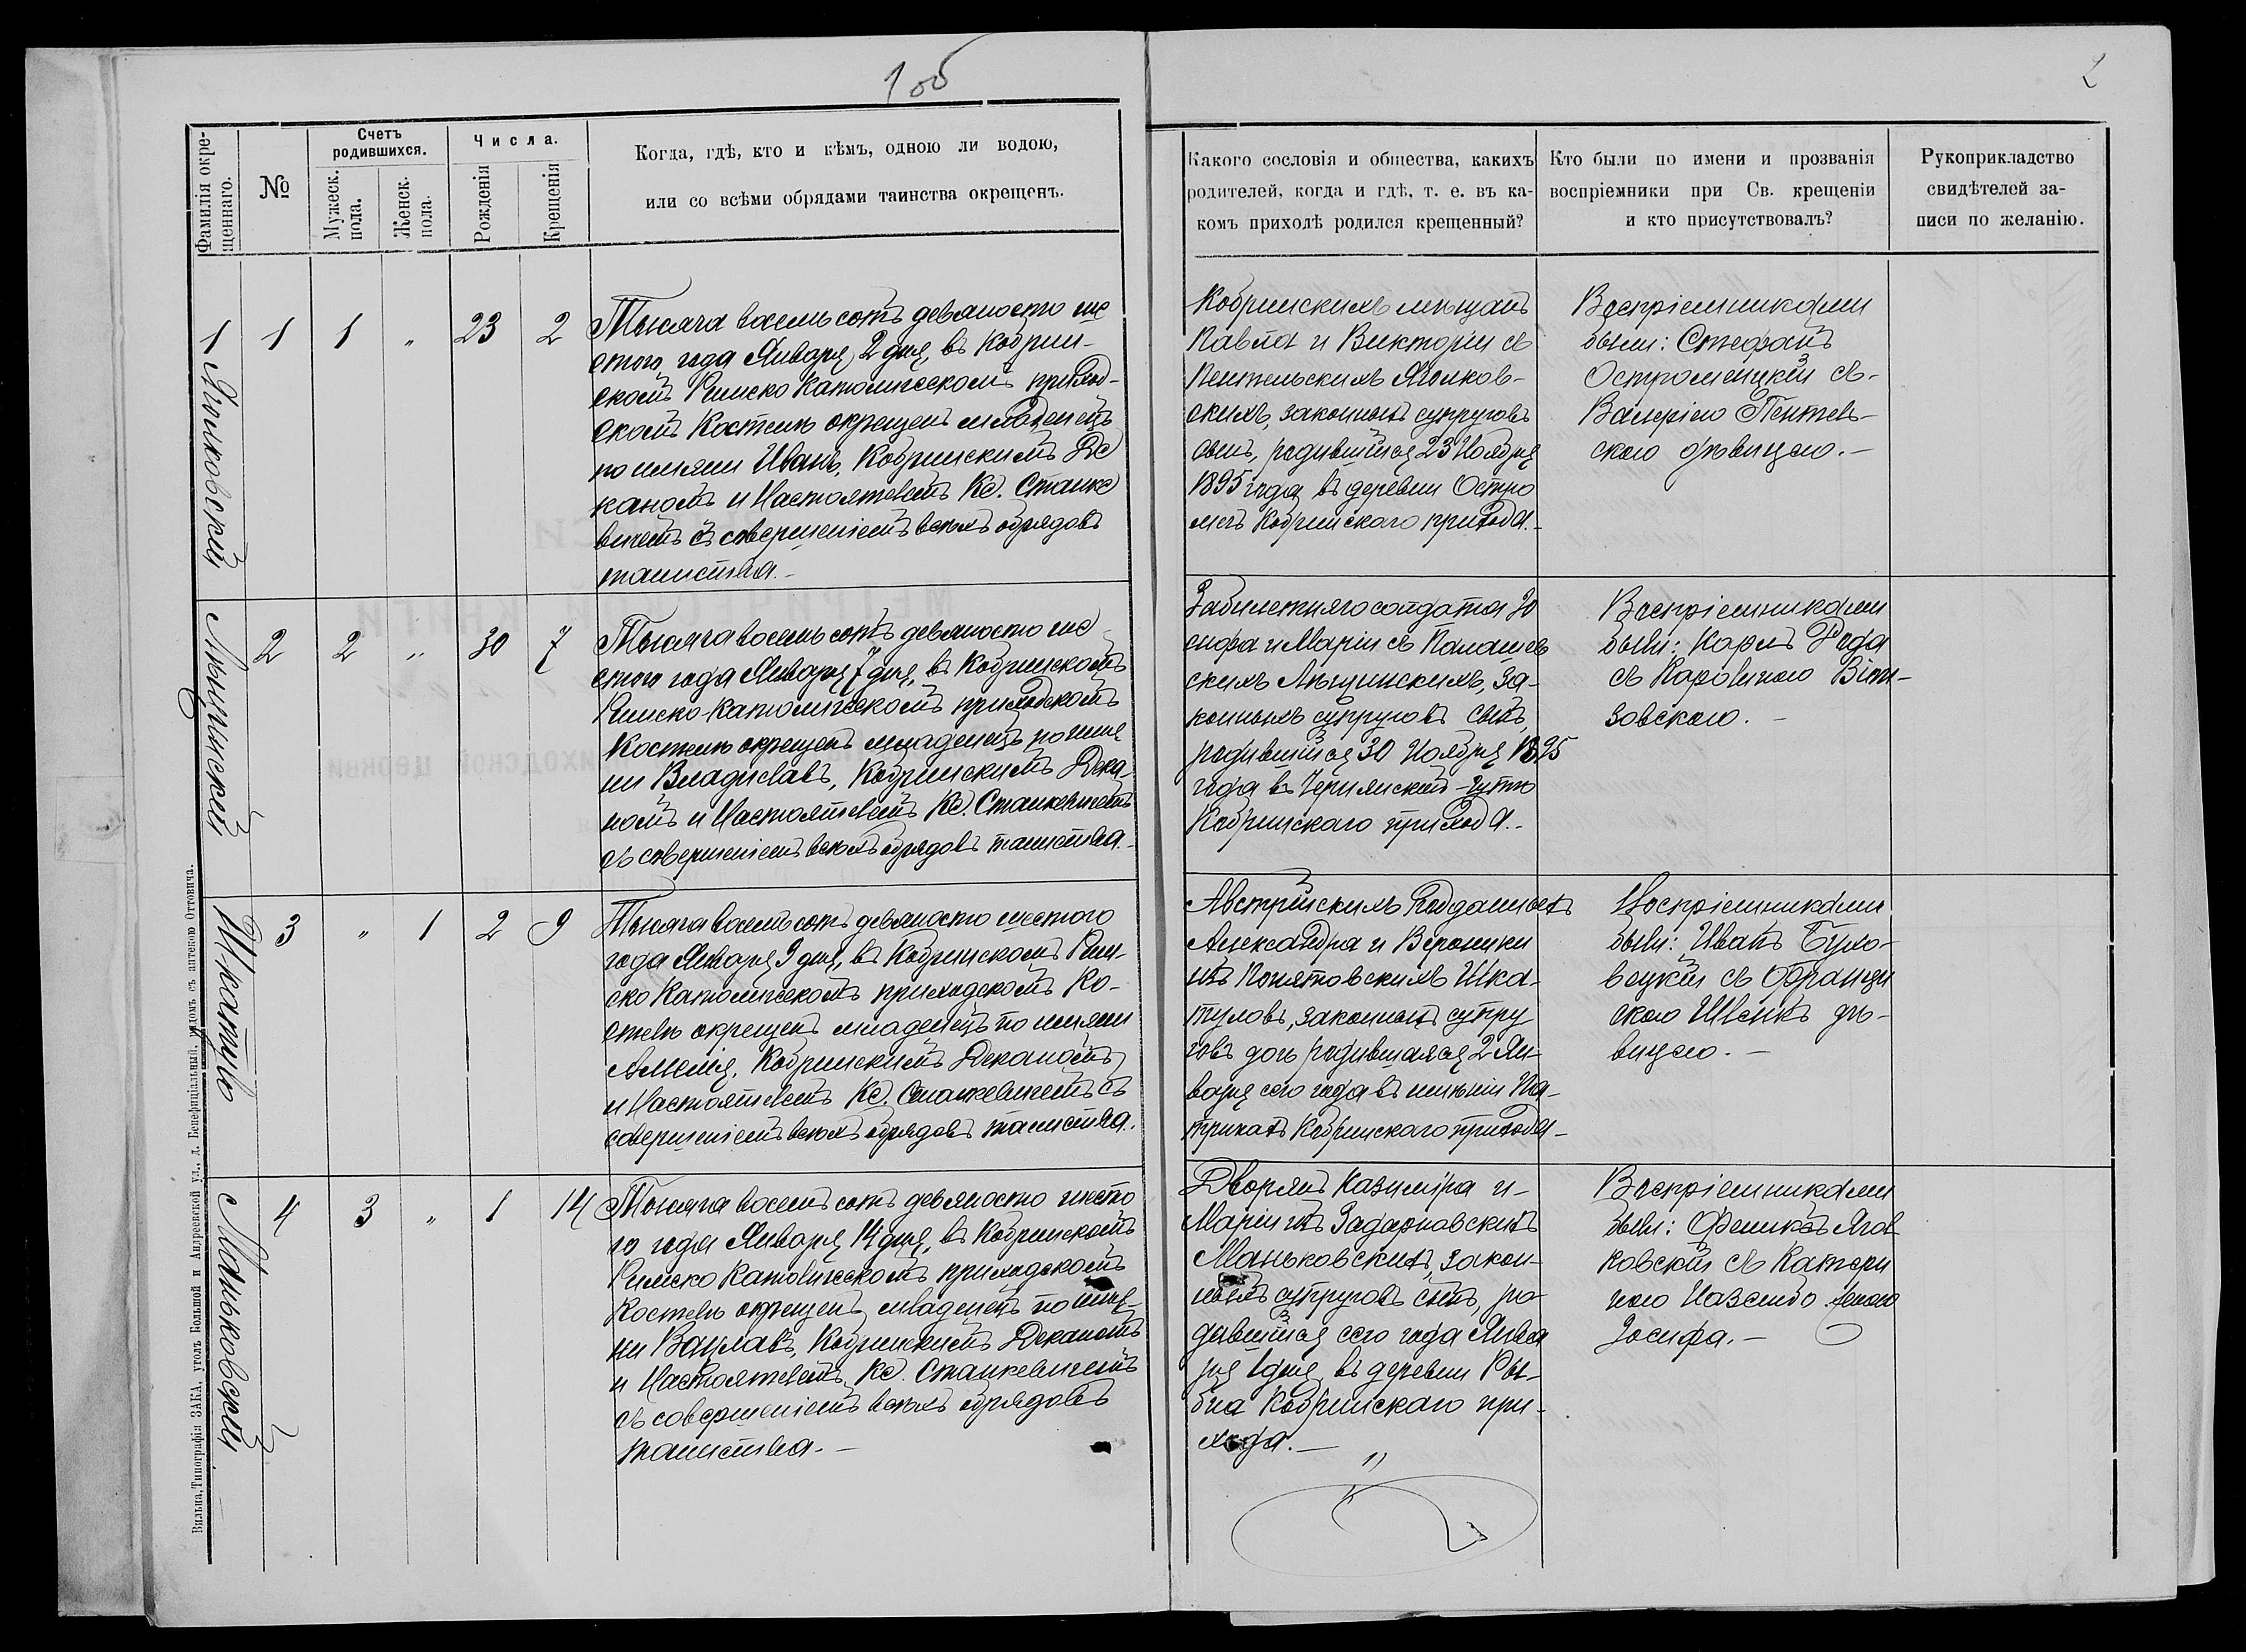 1 об
2
Фамилія окре-
щеннаго.
№
Счетъ
родившихся.
Мужеск.
пола.
Женск.
пола.
Числа.
Рожденія
Крещенія
Когда, гдѣ, кто и кѣмъ, одною ли водою,
или со всѣми обрядами таинства окрещенъ.
Какого сословія и общества, какихъ
родителей, когда и гдѣ, т. е. въ ка-
комъ приходѣ родился крещенный?
Кто были по имени и прозванія
воспріемники при Св. крещеніи
и кто присутствовалъ?
Рукоприкладство
свидѣтелей за-
писи по желанію.
1 1 1 „ 23 2
Тысяча восемь сотъ девяносто ше
стого года Января 2 дня, въ Кобрин-
скомъ Римско Католическомъ приход-
скомъ Костелѣ окрещенъ младенецъ
по имени Иванъ, Кобринскимъ Де
каномъ и Настоятелемъ Кс. Станке
вичемъ съ совершеніемъ всѣхъ обрядовъ
таинства.-
Кобринскихъ мѣщанъ
Павла и Викторіи съ
сынъ, родившійся 23 Ноября
1895 года въ деревни Остро
мичъ Кобринскаго прихода.-
Воспріемниками
были: Стефанъ
Остромецкій съ-
Валеріею Пентель-
скою дѣвицею.-
Лѣщинскій
2 2 „ 30 7
Тысяча восемь сотъ девяносто ше
стого года Января 7 дня, въ Кобринскомъ
Римско-Католическомъ приходскомъ
Костелѣ окрещенъ младенецъ по име
ни Владиславъ, Кобринскимъ Дека-
номъ и Настоятелемъ Кс. Станкевичемъ
съ совершеніемъ всѣхъ обрядовъ таинства.-
Забилетняго солдата Іо
сифа и Маріи съ
скихъ Лѣщинскихъ, за-
конныхъ супруговъ сынъ,
родившійся 30 Ноября 1895
года въ Чернянской-
Кобринскаго прихода.-
Воспріемниками
были: Карлъ Рода
съ Каролиною Вит-
зовскою.-
Шкатуло
3 „ 1 2 9
Тысяча восемь сотъ девяносто шестого
года Января 9 дня, въ Кобринскомъ Рим-
ско Католическомъ приходскомъ Ко-
стелѣ окрещенъ младенецъ по имени
Амелія, Кобринскимъ Деканомъ
и Настоятелемъ Кс. Станкевичемъ съ
совершеніемъ всѣхъ обрядовъ таинства.
Австрійскихъ Подданныхъ
Александра и Вероники
изъ Понятовскихъ Шка-
туловъ, законныхъ супру
говъ дочь родившаяся 2 Ян-
варя сего года въ имѣніи Па-
трикахъ Кобринскаго прихода-
Воспріемниками
были: Иванъ
вецкій съ Франци
скою дѣ-
вицею.-
Маньковскій
4 3 „ 1 14
Тысяча восемь сотъ девяносто шесто
го года Января 14 дня, въ Кобринскомъ
Римско Католическомъ приходскомъ
Костелѣ окрещенъ младенецъ по име-
ни Вацлавъ, Кобринскимъ Деканомъ
и Настоятелемъ Кс. Станкевичемъ
съ совершеніемъ всѣхъ обрядовъ
таинства.-
Дворянъ Казиміра и-
Маріи изъ Задарновскихъ
Маньковскихъ, закон-
ныхъ супруговъ сынъ, ро-
дившійся сего года Янва
ря 1 дня въ деревни Ры-
бна Кобринскаго при-
хода.-
Воспріемниками
были: Феликсъ Ягов
ковскій съ Катери
ною женою
Іосифа.-
Вильна. Типографія ЗАКА, уголъ Большой и Андреевской ул., д. Бенефиціальный, рядомъ съ аптекою Оттовича.